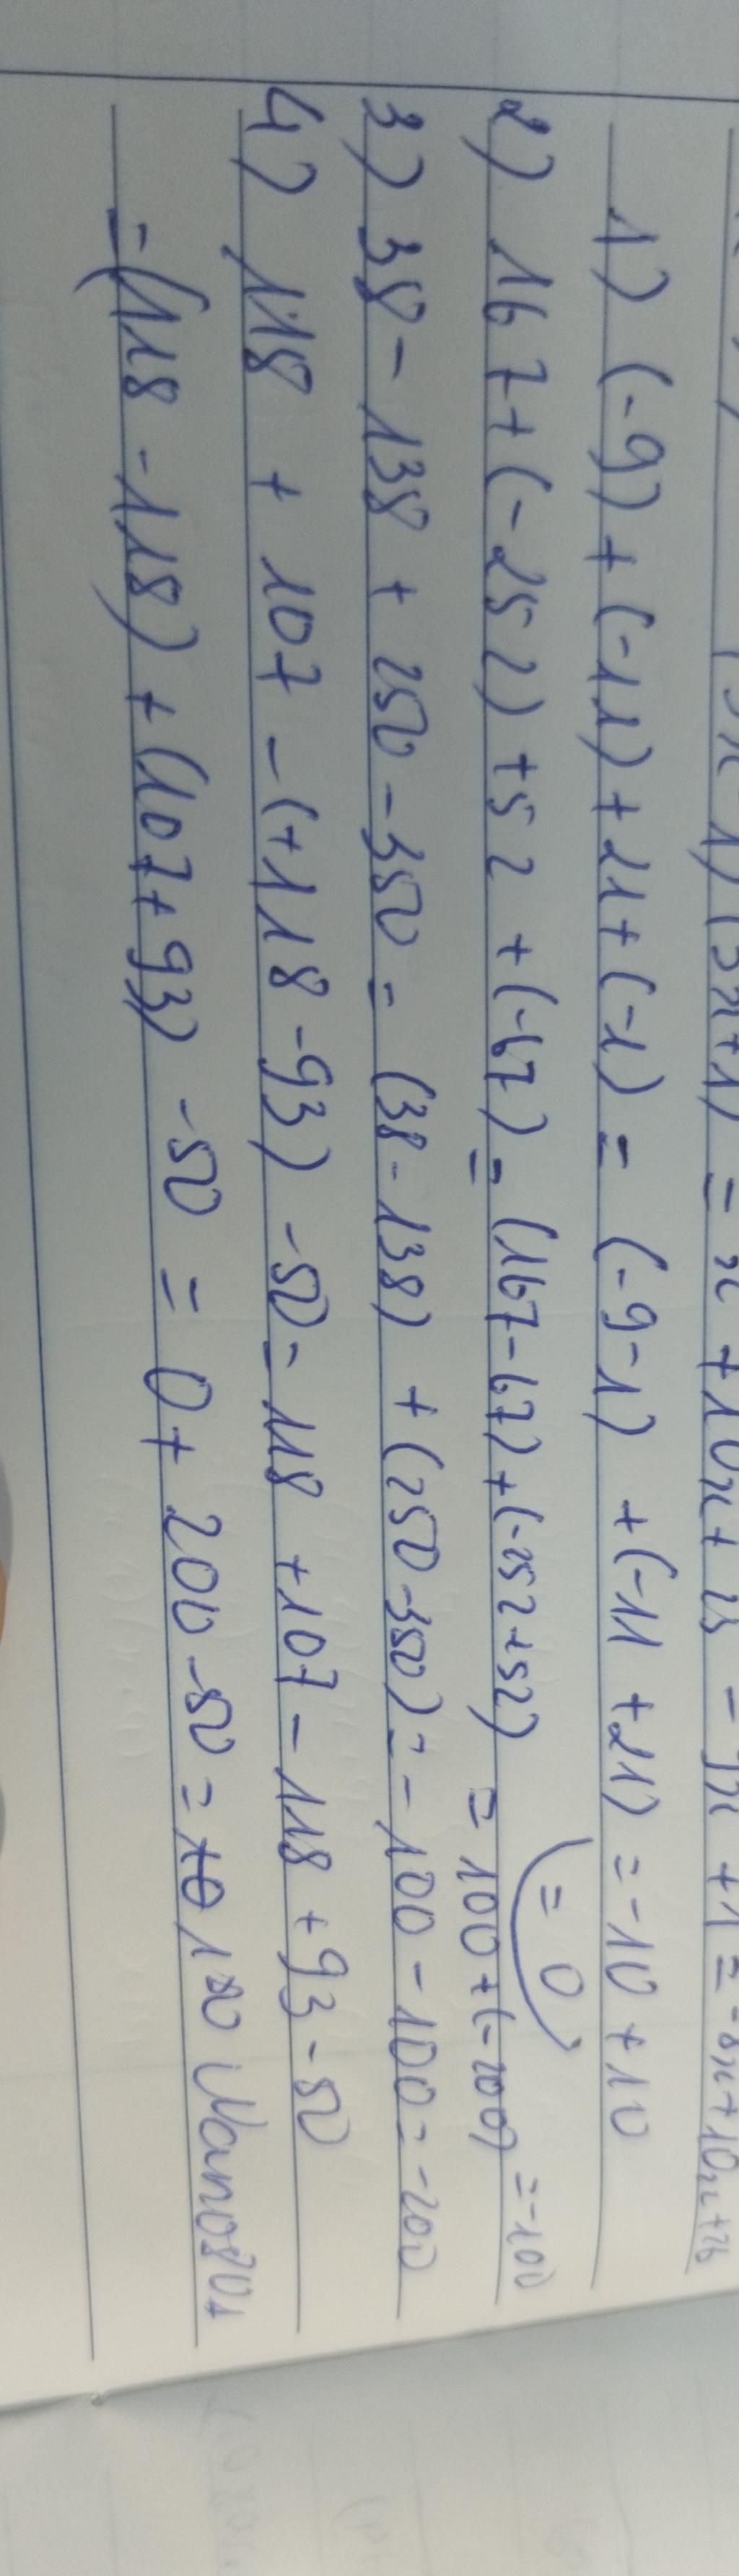 = x + 10x + 25 - 9x + 1 =
1) (-9) + (-11) + 21 + (-1) = (-9-1) + (-11 + 21) = -10 + 10
= 0
2) 167 + (-252) + 52 + (-67) = (167-67) + (-252+52) = 100 + (-200) = -100
3) 38 - 138 + 250 - 350 = (38 - 138) + (250-350) = - 100 - 100 = -200
4) 118 + 107 - (+118 - 93) - 50 = 118 + 107 - 118 + 93 - 50
= (118 - 118) + (107+93) - 50 = 0 + 200 - 50 =